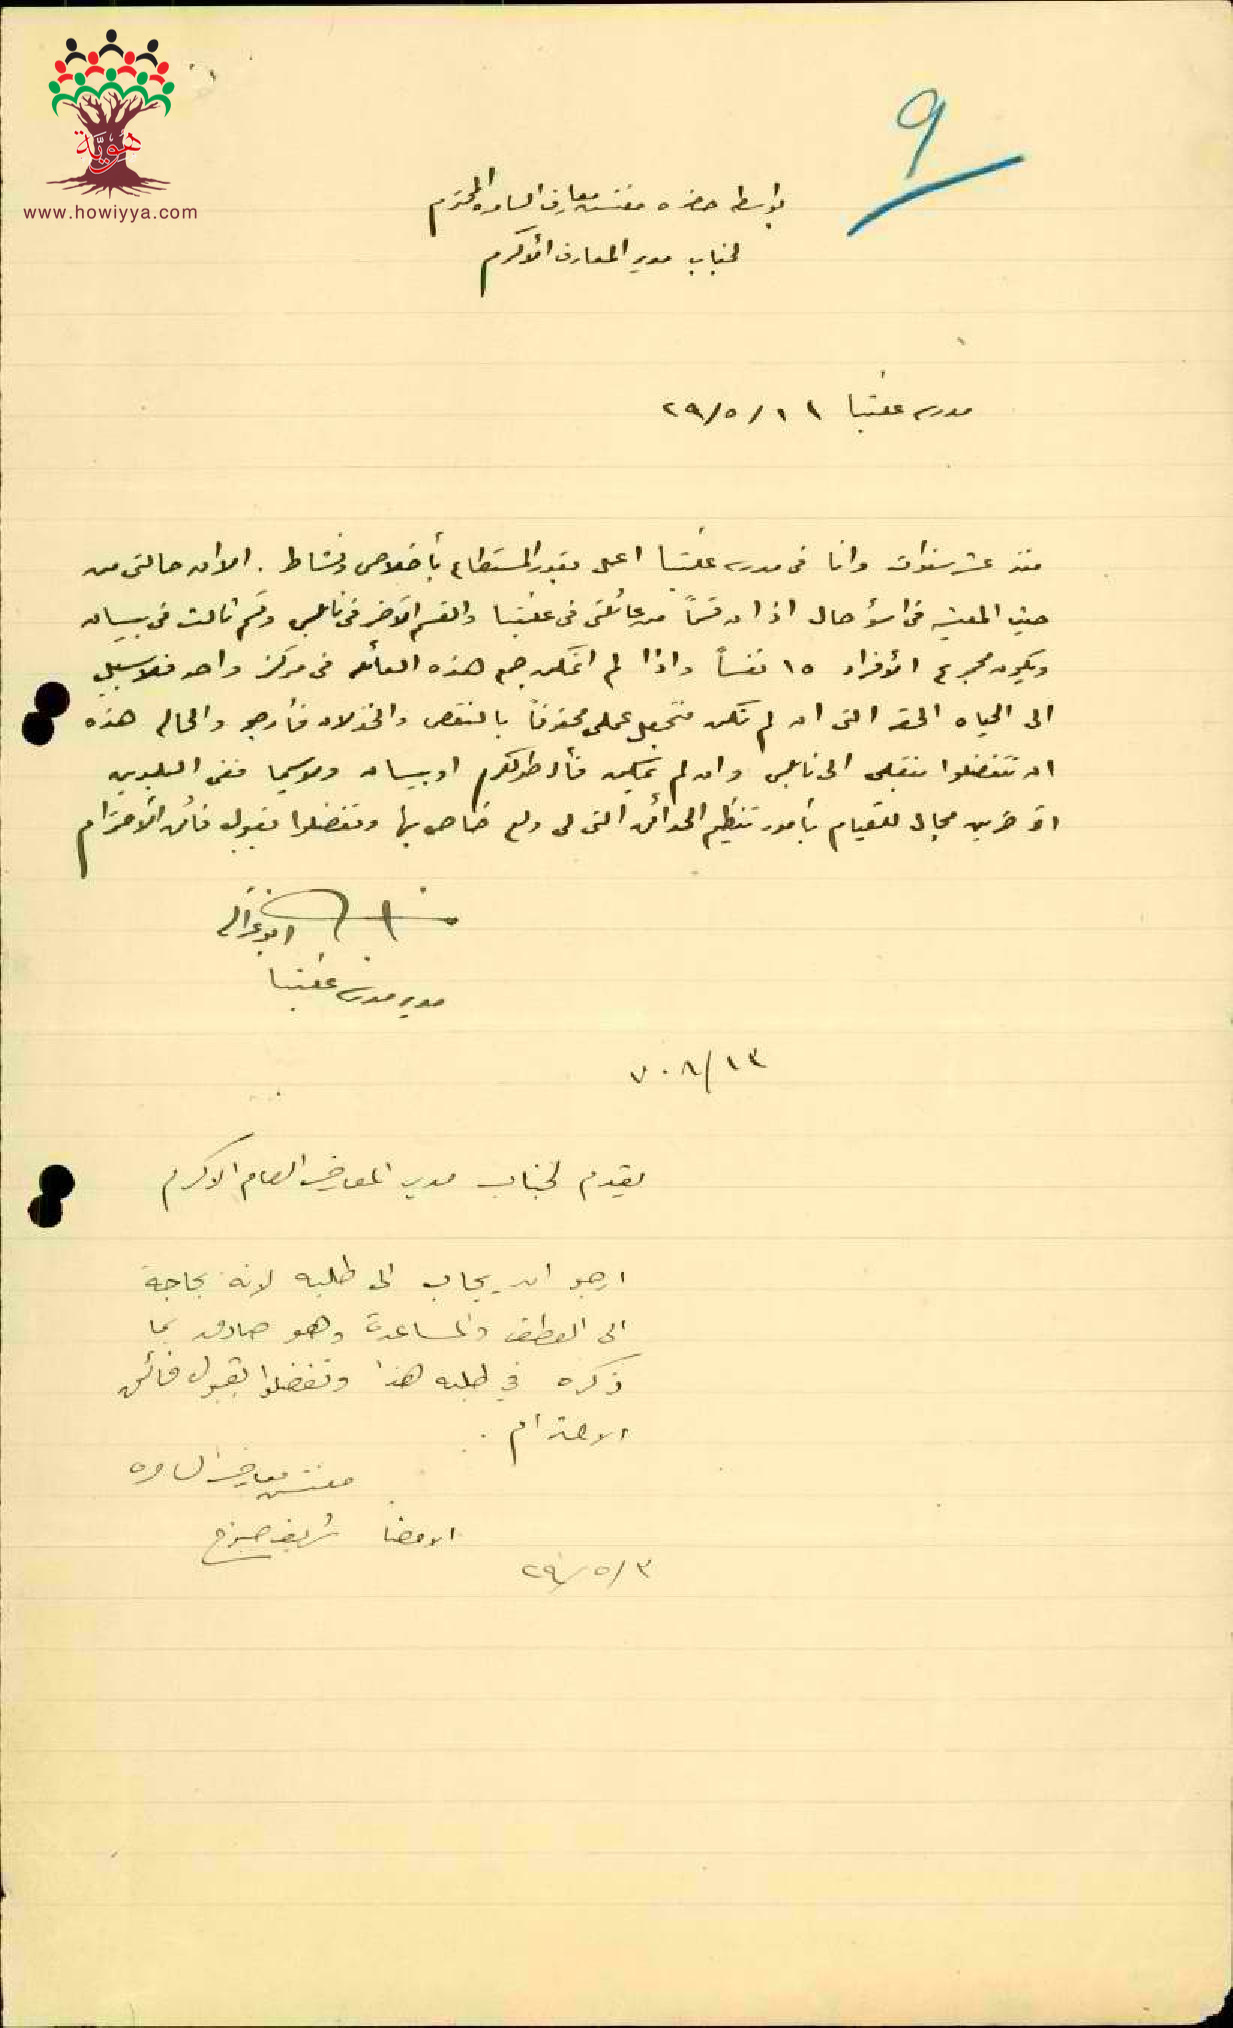 هوية
www.howiyya.com
٩
بواسطة حضرة مفتش معارف السامرة المحترم
لجناب مدير المعارف الأكرم
مدرسة عنبتا ١١/٥/٢٩
منذ عشر سنوات وانا في مدرسة عنبتا اعمل بقدر المستطاع بأخلاص ونشاط. الا ان حالتي من
حيث المعيشة في اسؤ حال اذ ان قسماً من عائلتي في عنبتا والقسم الآخر في نابلس وقسم ثالث في بيسان
ويكون مجموع الأفراد ١٥ نفساً واذا لم اتمكن جمع هذه العائلة في مركز واحد فلا سبيل
الى الحياة الحقة التي ان لم تكن تجعل عملي محفوفاً بالنقص والخذلان فأرجو والحالة هذه
ان تتفضلوا بنقلي الى نابلس وان لم يمكن فألى طولكرم او بيسان ولا سيما ففي البلدين
الآخرين مجال للقيام بأمور تنظيم الحدائق التي لي ولع خاص بها وتفضلوا بقبول فائق الأحترام
ابو غزالة
مدير مدرسة عنبتا
٧٠٨/١٣
يقدم لجناب مدير المعارف العام الاكرم
ارجو ان يجاب الى طلبه لانه بحاجة
الى العطف والمساعدة وهو صادق بما
ذكره في طلبه هذا وتفضلوا بقبول فائق
الاحترام.
مفتش معارف السامرة
الامضا شريف صبوح
٢٩/٥/٣